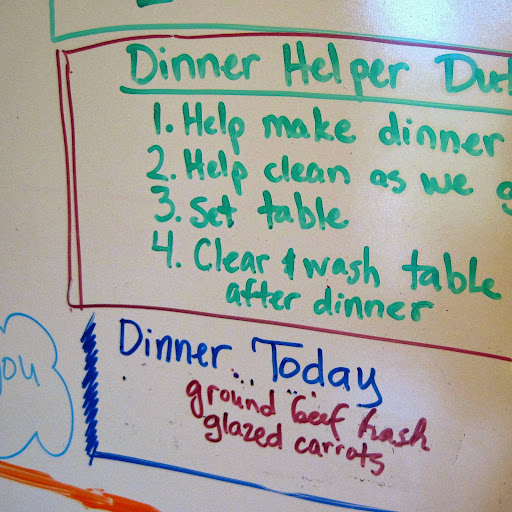 Dinner Helper Dut
1. Help make dinner
2. Help clean as we g
3. Set table
4. Clear & wash table
after dinner
you
Dinner Today
ground beef hash
glazed carrots